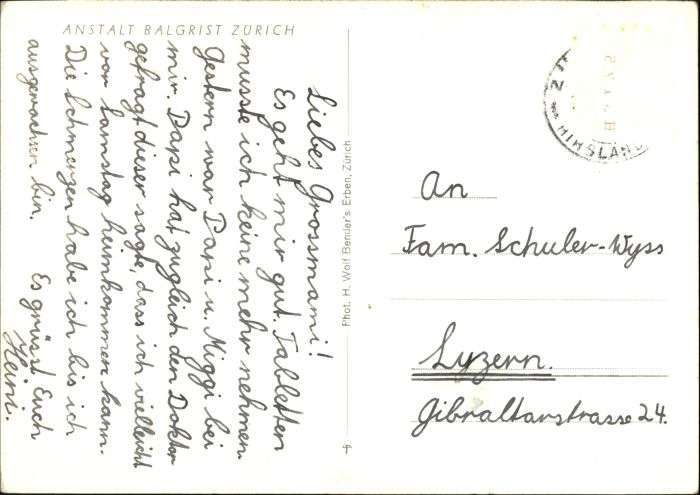 ANSTALT BALGRIST ZÜRICH
Liebes Grossmami!
Es geht mir gut. Tabletten
musste ich keine mehr nehmen.
Gestern war Papi u. Miggi bei
mir. Papi hat zugleich den Doktor
gefragt dieser sagte, dass ich vielleicht
vor Samstag heimkommen kann.
Die Schmerzen habe ich bis ich
ausgewachsen bin. Es grüsst Euch
Heini.
Phot. H. Wolf Bender's Erben, Zürich
An
Fam. Schuler-Wyss
Luzern.
Gibraltarstrasse 24.